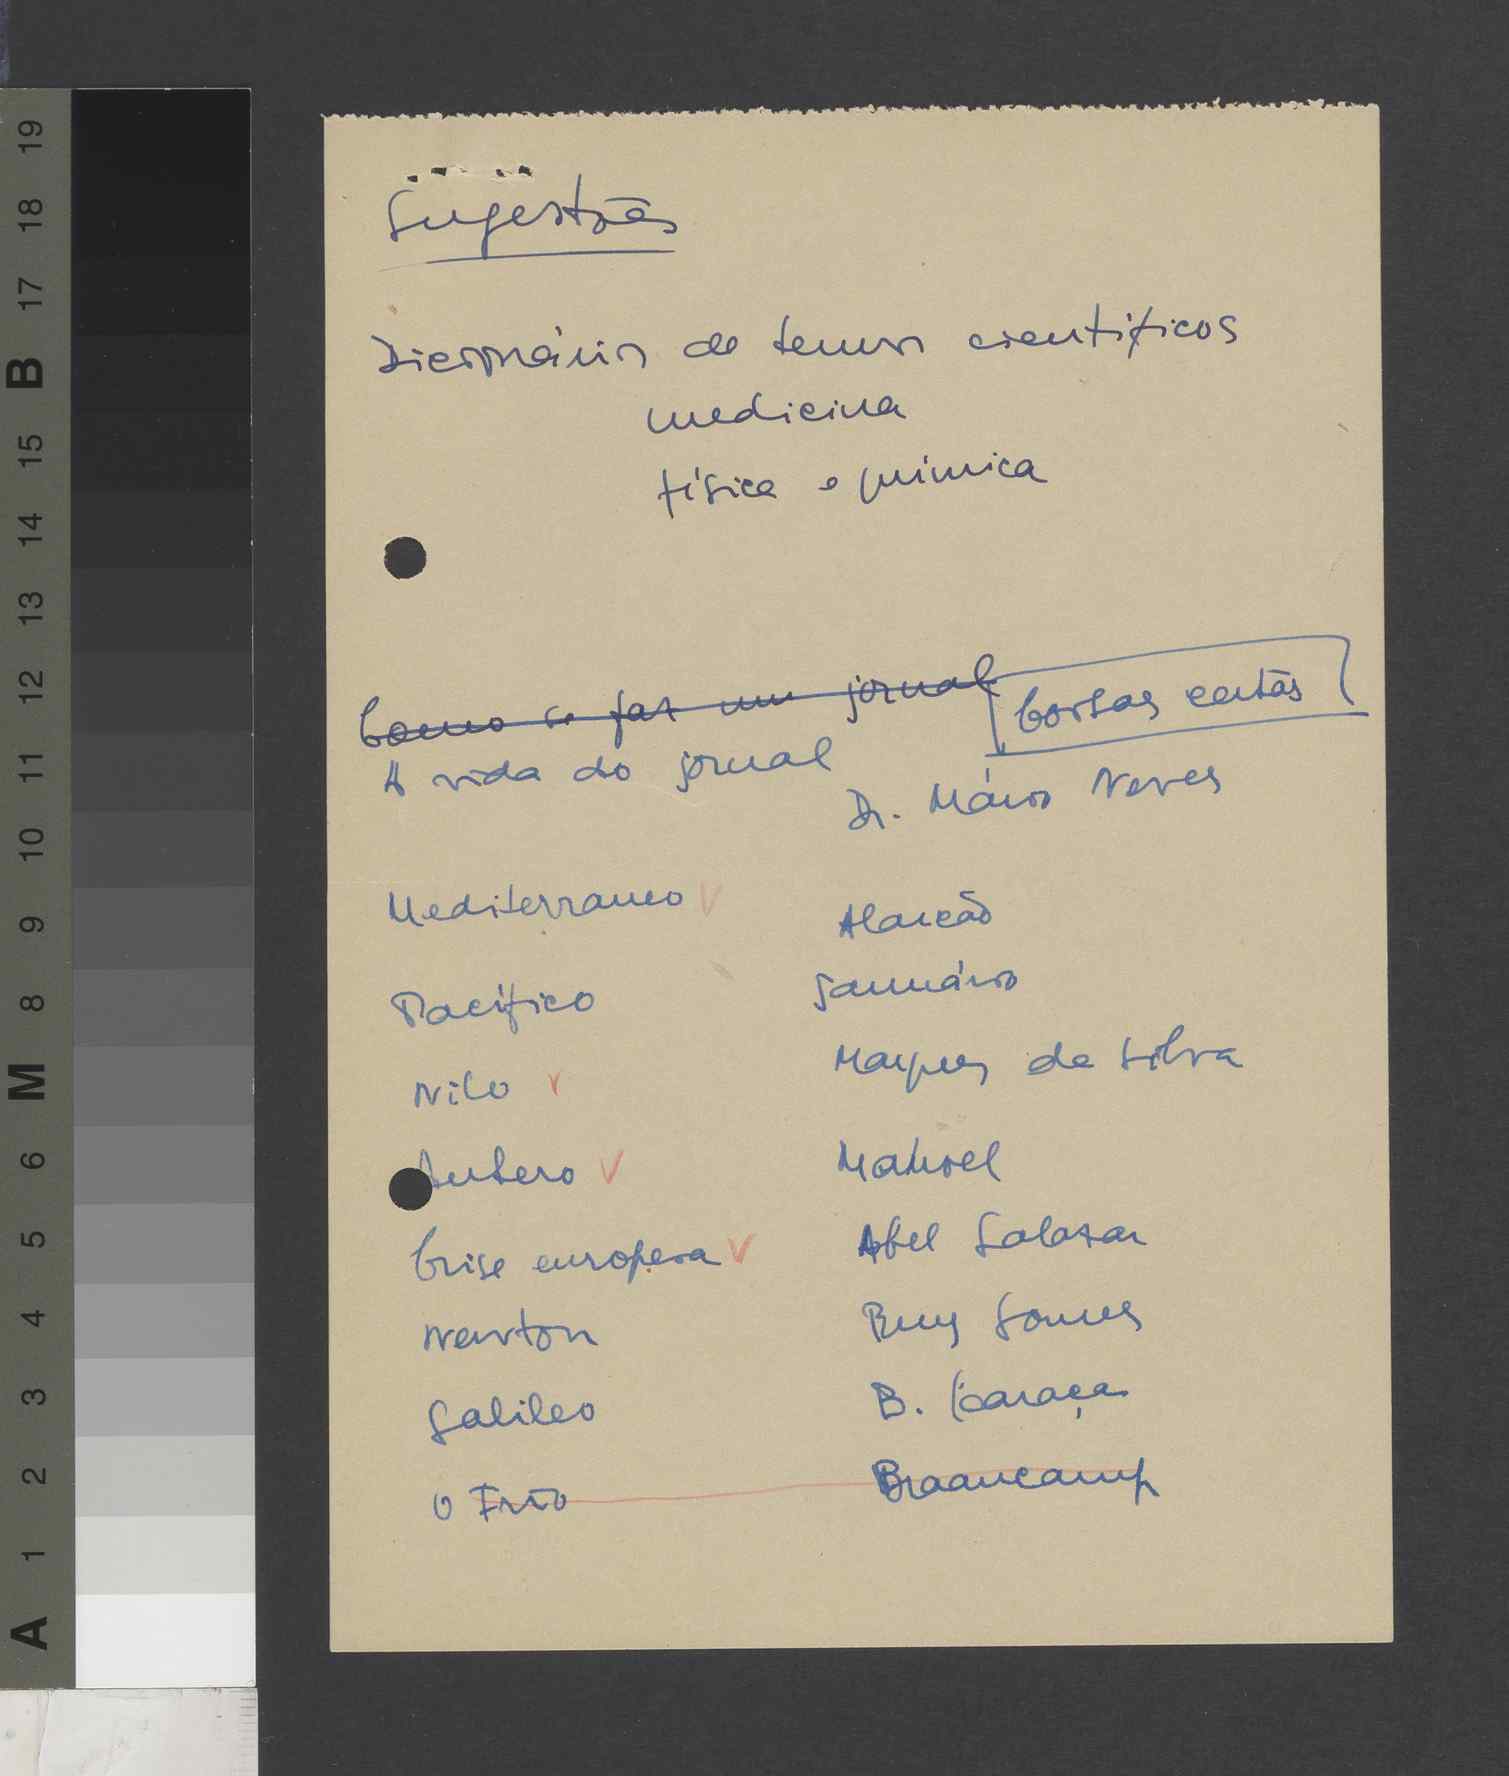 Sugestões
Dicionários de temas científicos
medicina
física e química
Como se faz um jornal
Corsas cristãs
A vida do jornal
Dr. Mário Neves
Mediterraneo V Alarcão
Pacífico Januário
Nilo V Marques da Silva
Antero V Manoel
Crise europeia V Abel Salazar
Newton Ruy Gomes
Galileo B. Caraça
O Frio Braancamp
19
18
17
B
15
14
13
12
11
10
9
8
M
6
5
4
3
2
1
A